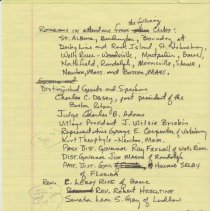 the following
Rotarians in attendance from Clubs:
St. Albans, Burlington, Barre, at
Derby Line and Rock Island, St. Johnsbury,
Wells River-Woodsville, Montpelier, Barre,
Northfield, Randolph, Morrisville, Stowe,
Newton, Mass and Boston, Mass.
Distinguished Guests and Speakers
Charles C. Dasey, past president of the
Boston Rotary
Judge Charles B. Adams
Village President J. Wilsie Brisbin
Representative George E. Carpenter of Waterbury
Kurt Theophyle - Newton, Mass.
Past Dist. Governor Ray Farwell of Wells River
Dist. Governor Jim Marsh of Randolph
Past Dist. Gov. Harold Selby
of Florida
Rev. E. Leroy Rice of Barre
Rev. Robert Heseltine
Senator Leon S. Gay of Ludlow